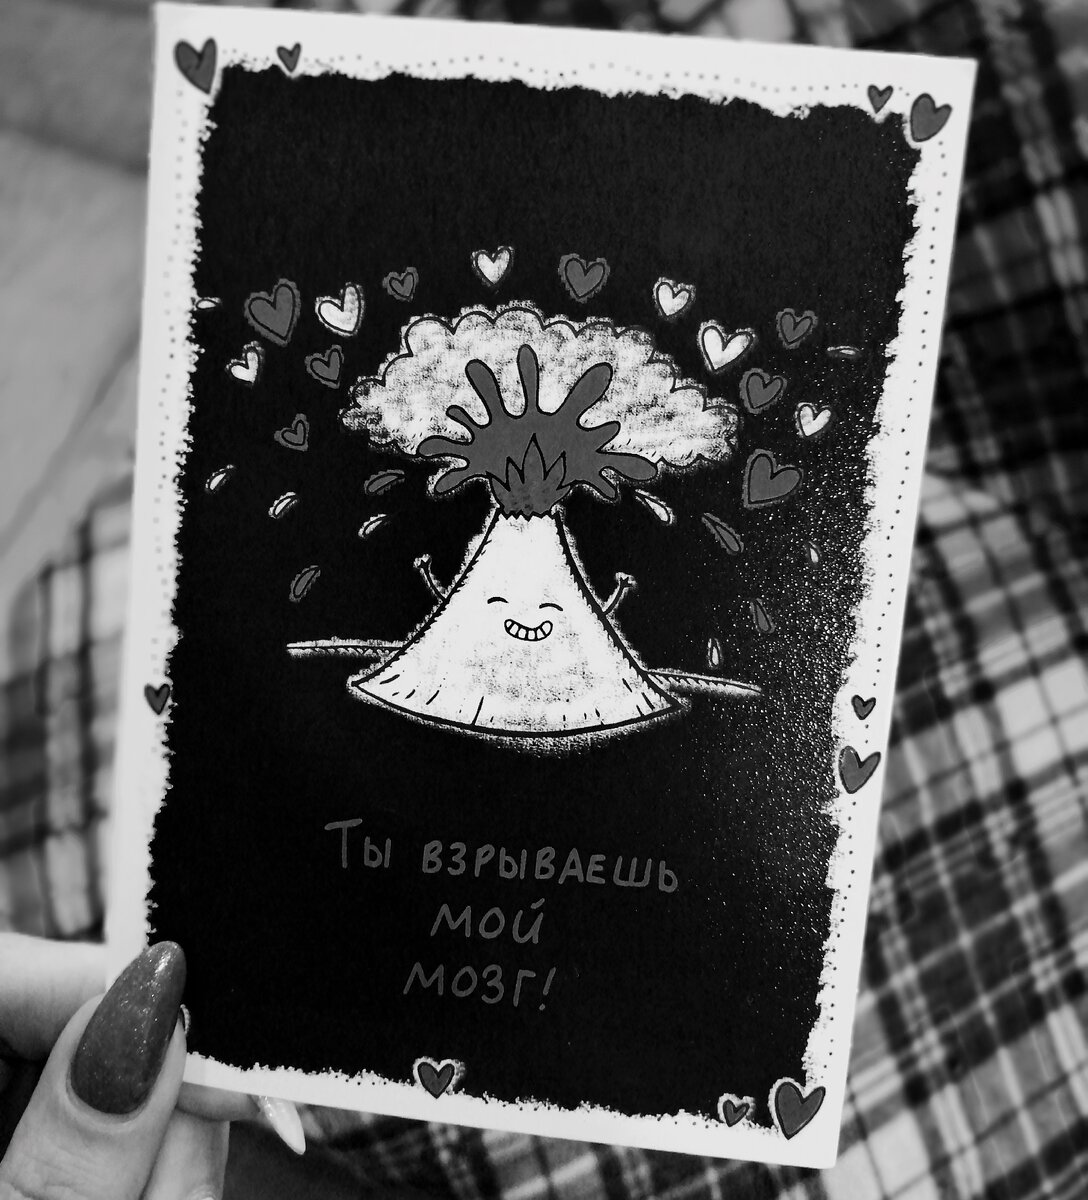 Ты взрываешь
мой
мозг!